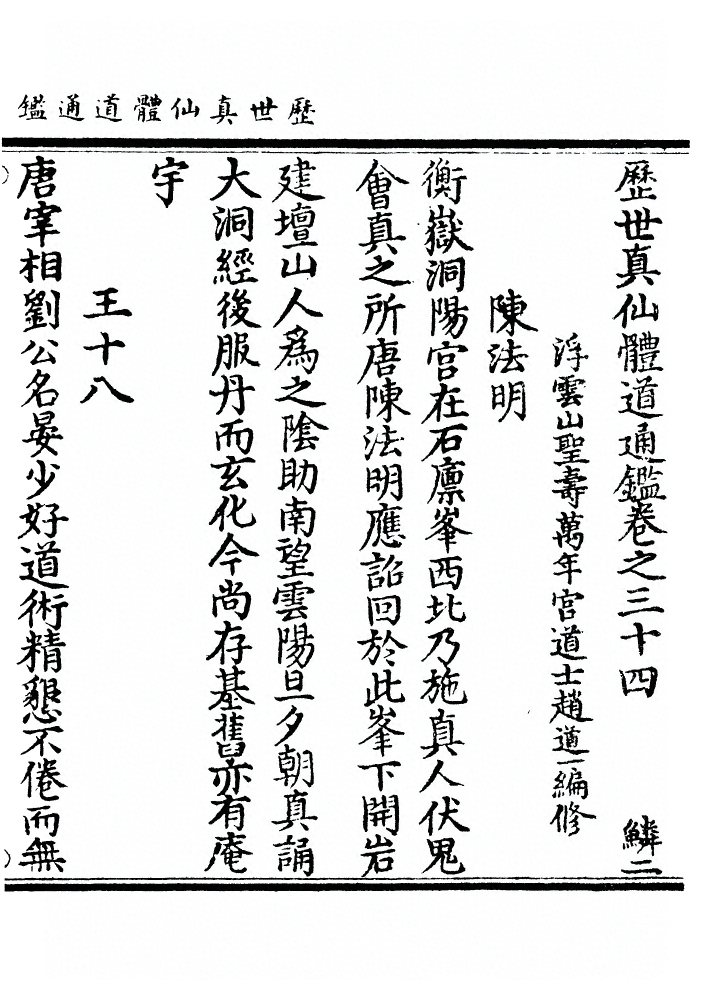 歷世真仙體道通鑑
歷世真仙體道通鑑卷之三十四 鱗二
浮雲山聖壽萬年宮道士趙道一編修
陳法明
衡嶽洞陽宮在石廪峯西北乃施真人伏鬼
會真之所唐陳法明應詔回於此峯下開岩
建壇山人爲之陰助南望雲陽旦夕朝真誦
大洞經後服丹而玄化今尚存基舊亦有庵
宇
王十八
唐宰相劉公名晏少好道術精懇不倦而無